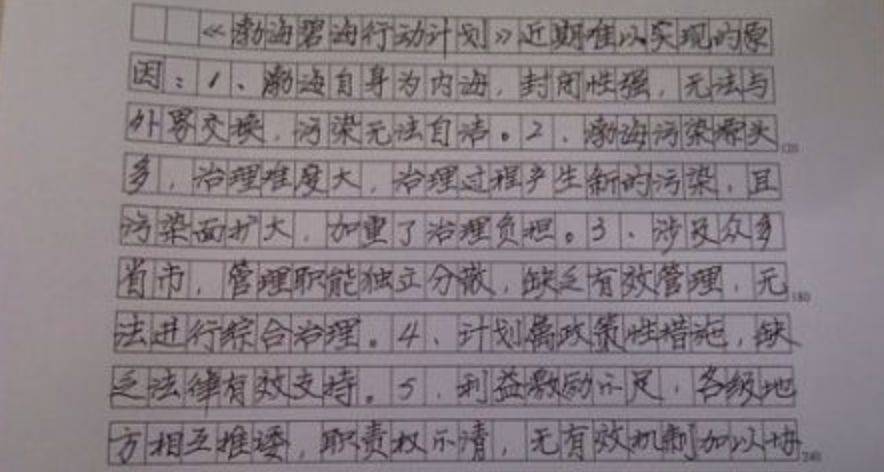 《渤海碧海行动计划》近期难以实现的原
因：1、渤海自身为内海，封闭性强，无法与
外界交换，污染无法自洁。2、渤海污染源头
120
多，治理难度大，治理过程产生新的污染，且
污染面扩大，加重了治理负担。3、涉及众多
省市，管理职能独立分散，缺乏有效管理，无
180
法进行综合治理。4、计划属政策性措施，缺
乏法律有效支持。5、利益激励不足，各级地
方相互推诿，职责权不清，无有效机制加以协
240